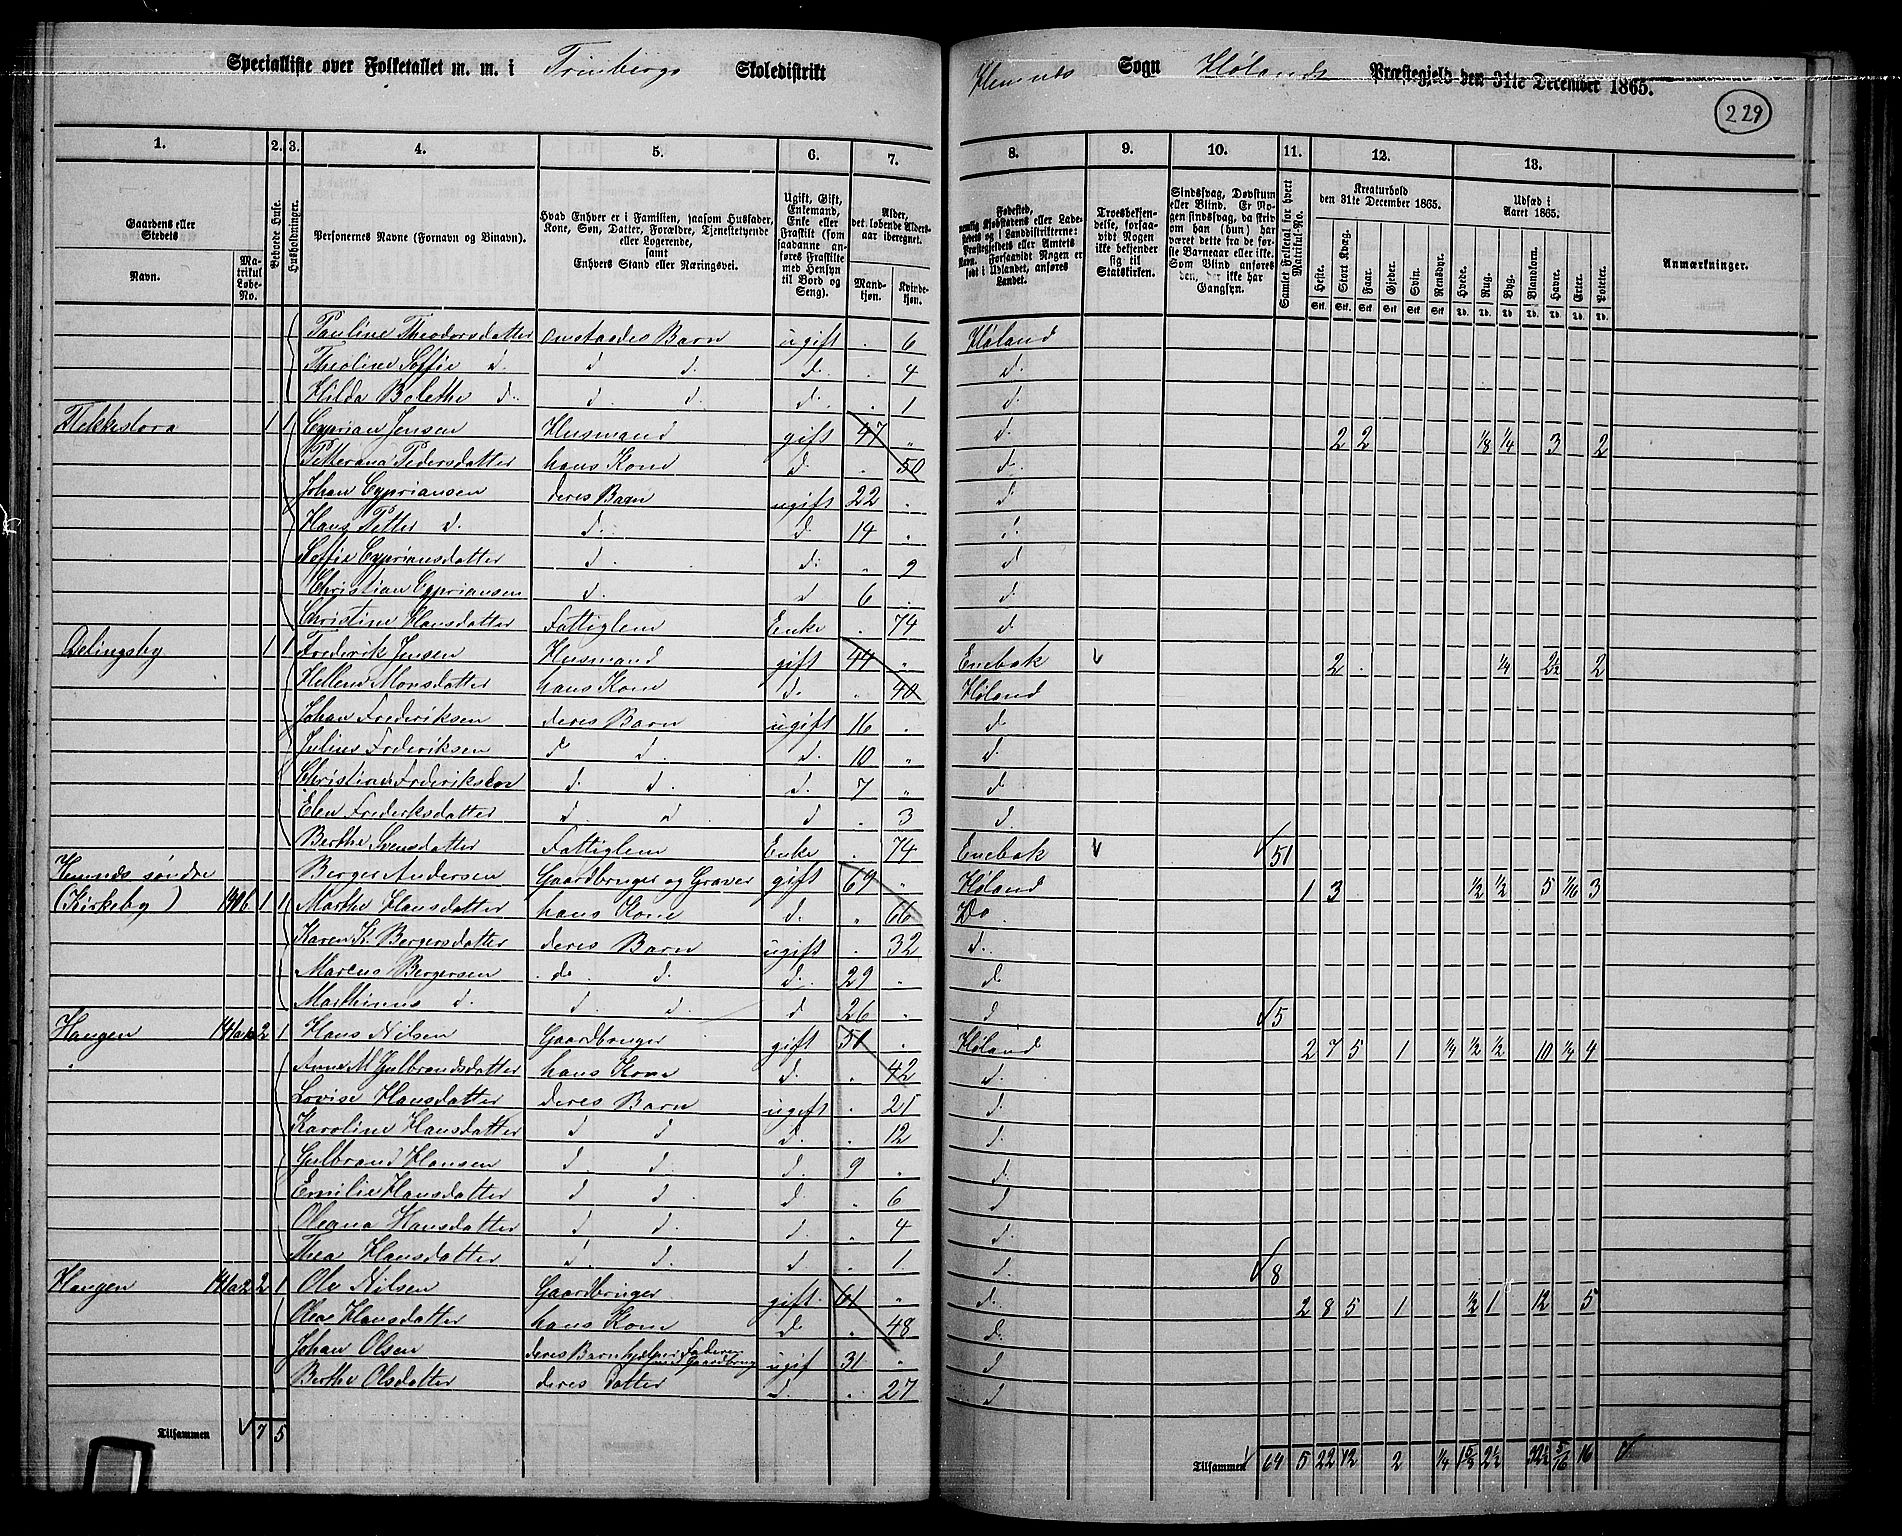 Specialliste over Folketallet m. m. i Trinbergs Skoledistrikt Hemnes Sogn Hølands Præstegjeld den 31te December 1865.
229
1. 2. 3. 4. 5. 6. 7. 8. 9. 10. 11. 12. 13.
Gaardens eller Stedets
Navn.
Matrikul Løbe-No.
Beboede Huse.
Husholdninger.
Personernes Navne (Fornavn og Tilnavn).
Hvad Enhver er i Familien, saasom Husfader, Kone, Søn, Datter, Forældre, Tjenestetyende eller Logerende, samt Enhvers Stand eller Næringsvei.
Ugift, Gift, Enkemand, Enke eller Fraskilt (som saadanne anføres Fraskilte med Hensyn til Bord og Seng).
Alder, det løbende Aldersaar iberegnet.
Mandkjøn. Kvindekjøn.
Fødested, nemlig Kjøbstadens eller Ladestedets og i Landdistrikterne: Præstegjeldets eller Amtets Navn. Forsaavidt Nogen er født i Udlandet, anføres Landet.
Troesbekjendelse, forsaavidt Nogen ikke bekjender sig til Statskirken.
Sindssvag, Døvstum eller Blind. Er Nogen sindssvag, da skrives om han (hun) har været dette fra de første Barneaar eller ikke. Som Blind anføres den, der ikke har Gangsyn.
Samlet Folketal for hvert Matrikul-No.
Kreaturhold den 31te December 1865.
Heste. Stort Kvæg. Faar. Gjeder. Svin. Rensdyr.
Udsæd i Aaret 1865.
Hvede. Rug. Byg. Blandkorn. Havre. Erter. Poteter.
Stk. Stk. Stk. Stk. Stk. Stk. Td. Td. Td. Td. Td. Td. Td.
Anmærkninger.
Pauline Theodorsdatter Onstaades Barn ugift . 6 Høland
Theoline Soffie d. d d. d. . 4 d.
Hilda Bolethe d. d. d. d. . 1 d.
Flekkeslora 1 1 Cyprian Jensen Husmand gift 47 " d. 2 2 1/8 1/4 3 2
Petterana Pedersdatter hans Kone d. . 50 d.
Johan Cypriansen deres Barn ugift 22 . d
Hans Petter d. d. d 14 " d.
Soffie Cypriansdatter d. d. " 9 d
Christian Cypriansen d. d 6 . d.
Christine Hansdatter Fattiglem Enke . 74 d
Delingsby 1 1 Frederik Jensen Husmand gift 44 " Enebak v 2 . 1/4 2½ 2
Hellene Monsdatter hans Kone d. " 40 Høland
Johan Frederiksen deres Barn ugift 16 . d
Julius Frederiksen d d. d. 10 " d
Christian Frederiksen d. d. d. 7 " d
Elen Frederksdatter d d d . 3 d.
Berthe Svensdatter Fattiglem Enke . 74 Enebak v √51
Hemnds søndre Berger Andersen Gaardbruger og Graver gift 69 " Høland 1 3 ½ ½ 5 1/16 3
(Kirkeby) 1406 1 1 Marthe Hansdatter hans Kone d. " 66 Do
Karen K. Bergersdatter deres Barn ugift . 32 d.
Marcus Bergersen do. d. d. 29 " d.
Marthinus d. d. d. d 26 " d √5
Haugen 141a1 2 1 Hans Nilsen Gaardbruger gift 51 . Høland 2 7 5 1 ¼ ½ ½ 10 ¼ 4
Anne M Gulbrandsdatter hans Kone d. " 42 d.
Lovise Hansdatter deres Barn ugift . 21 d.
Karoline Hansdatter d d d. . 12 d.
Gulbrand Hansen d. d. d. 9 . d.
Emilie Hansdatter d d. d. " 6 d
Oleana Hansdatter d d. d. . 4 d.
Thea Hansdatter d. d. d . 1 d. √8
Haugen 141a2 2 1 Ole Nilsen Gaardbruger gift 61 " d. 2 8 5 1 ½ 1 12 5
Olea Hansdatter hans Kone d " 48 d.
Johan Olsen deres Barn hjelper Faderen med Gaardbrug ugif 31 " d
Berthe Olsdatter deres Datter d. . 27 d
Tilsammen √ 7 5
Tilsammen 64 5 22 12 2 ¼ 1 5/8 2½ 32½ 5/16 16